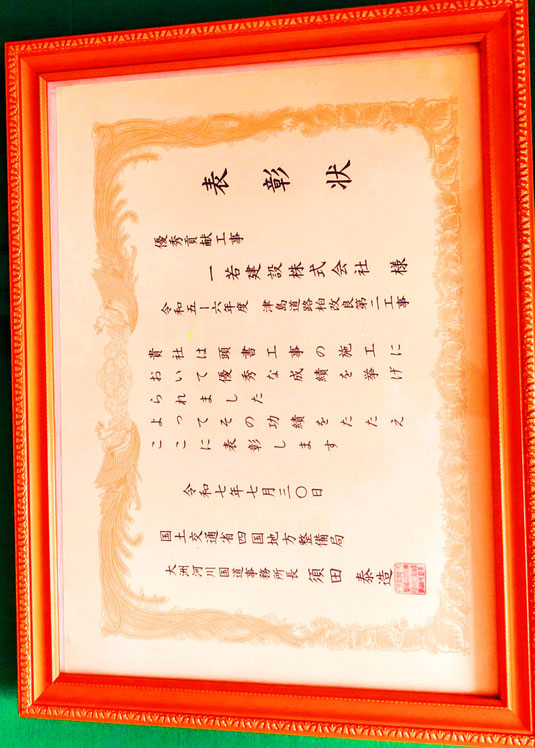 表彰状
優秀貢献工事
一若建設株式会社 様
令和五-六年度 津島道路柏改良第二工事
貴社は頭書工事の施工に
おいて優秀な成績を挙げ
られました
よってその功績をたたえ
ここに表彰します
令和七年七月三〇日
国土交通省四国地方整備局
大洲河川国道事務所長 須田 泰造